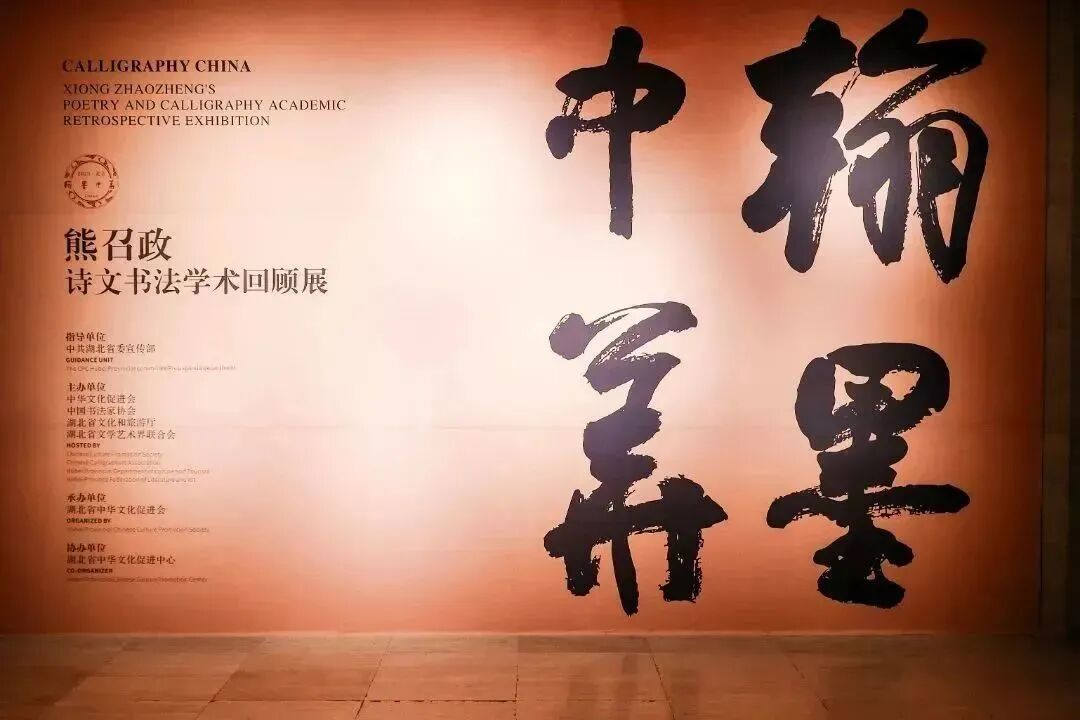 CALLIGRAPHY CHINA
XIONG ZHAOZHENG'S
POETRY AND CALLIGRAPHY ACADEMIC
RETROSPECTIVE EXHIBITION
熊召政
诗文书法学术回顾展
指导单位
中共湖北省委宣传部
GUIDANCE UNIT
主办单位
中华文化促进会
中国书法家协会
湖北省文化和旅游厅
湖北省文学艺术界联合会
HOSTED BY
Chinese Culture Promotion Society
Chinese Calligraphers Association
Hubei Provincial Department of Culture and Tourism
Hubei Province Federation of Literature and Art
承办单位
湖北省中华文化促进会
ORGANIZED BY
Hubei Provincial Chinese Culture Promotion Society
协办单位
湖北省中华文化促进中心
CO-ORGANIZER
翰墨
中华